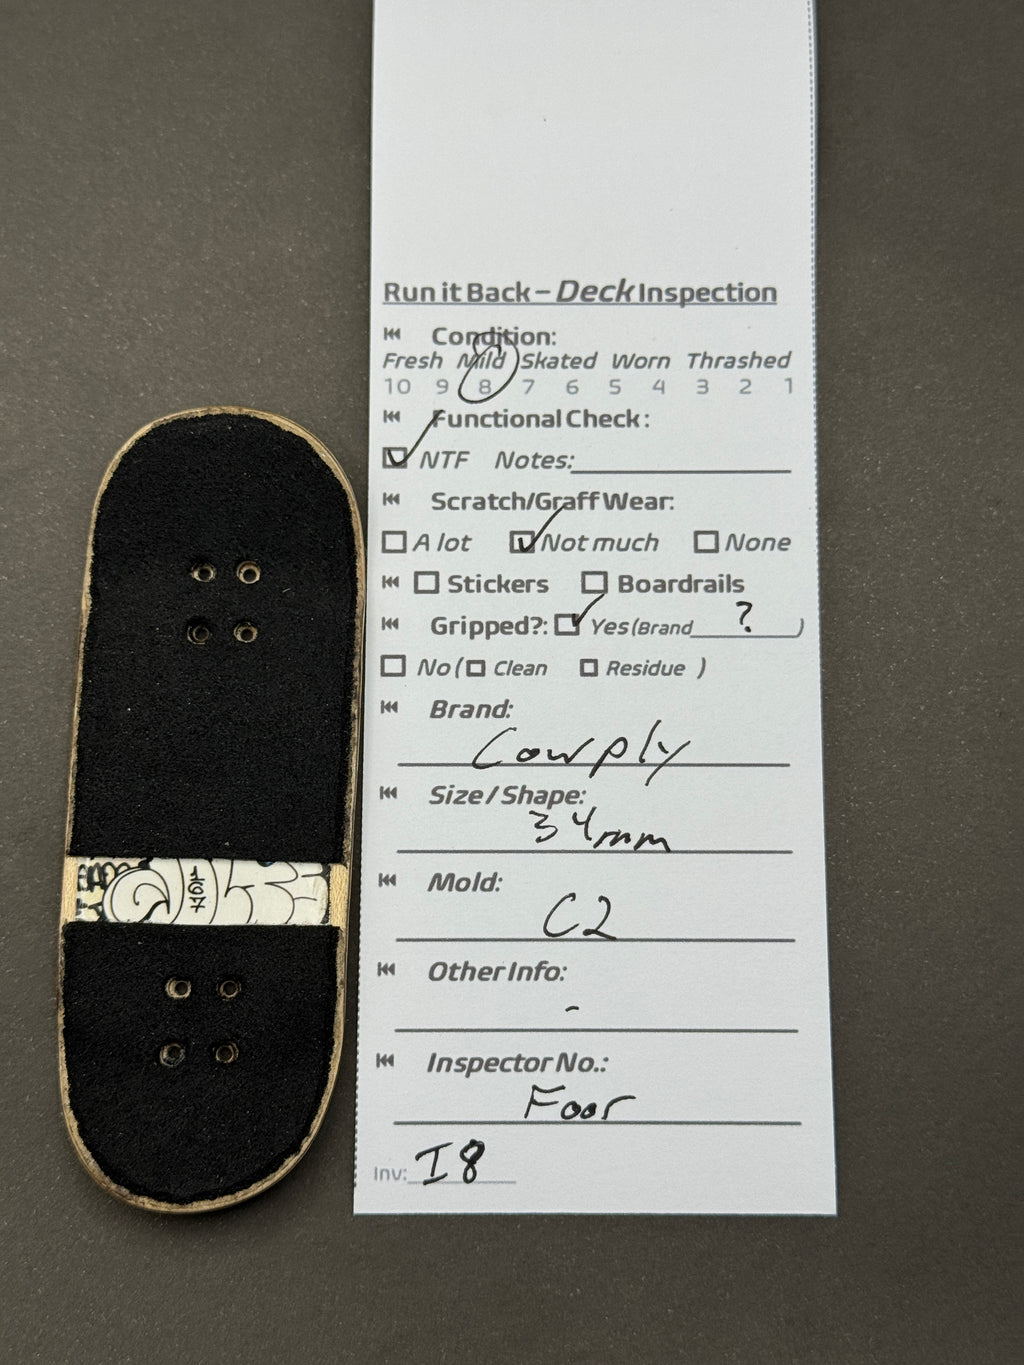 Run it Back – Deck Inspection
Condition:
Fresh Mild Skated Worn Thrashed
10 9 8 7 6 5 4 3 2 1
Functional Check:
NTF Notes:
Scratch/Graff Wear:
A lot Not much None
Stickers Boardrails
Gripped?: Yes (Brand ? )
No ( Clean Residue )
Brand:
Cowply
Size / Shape:
34mm
Mold:
C2
Other Info:
-
Inspector No.:
Foor
Inv: I8